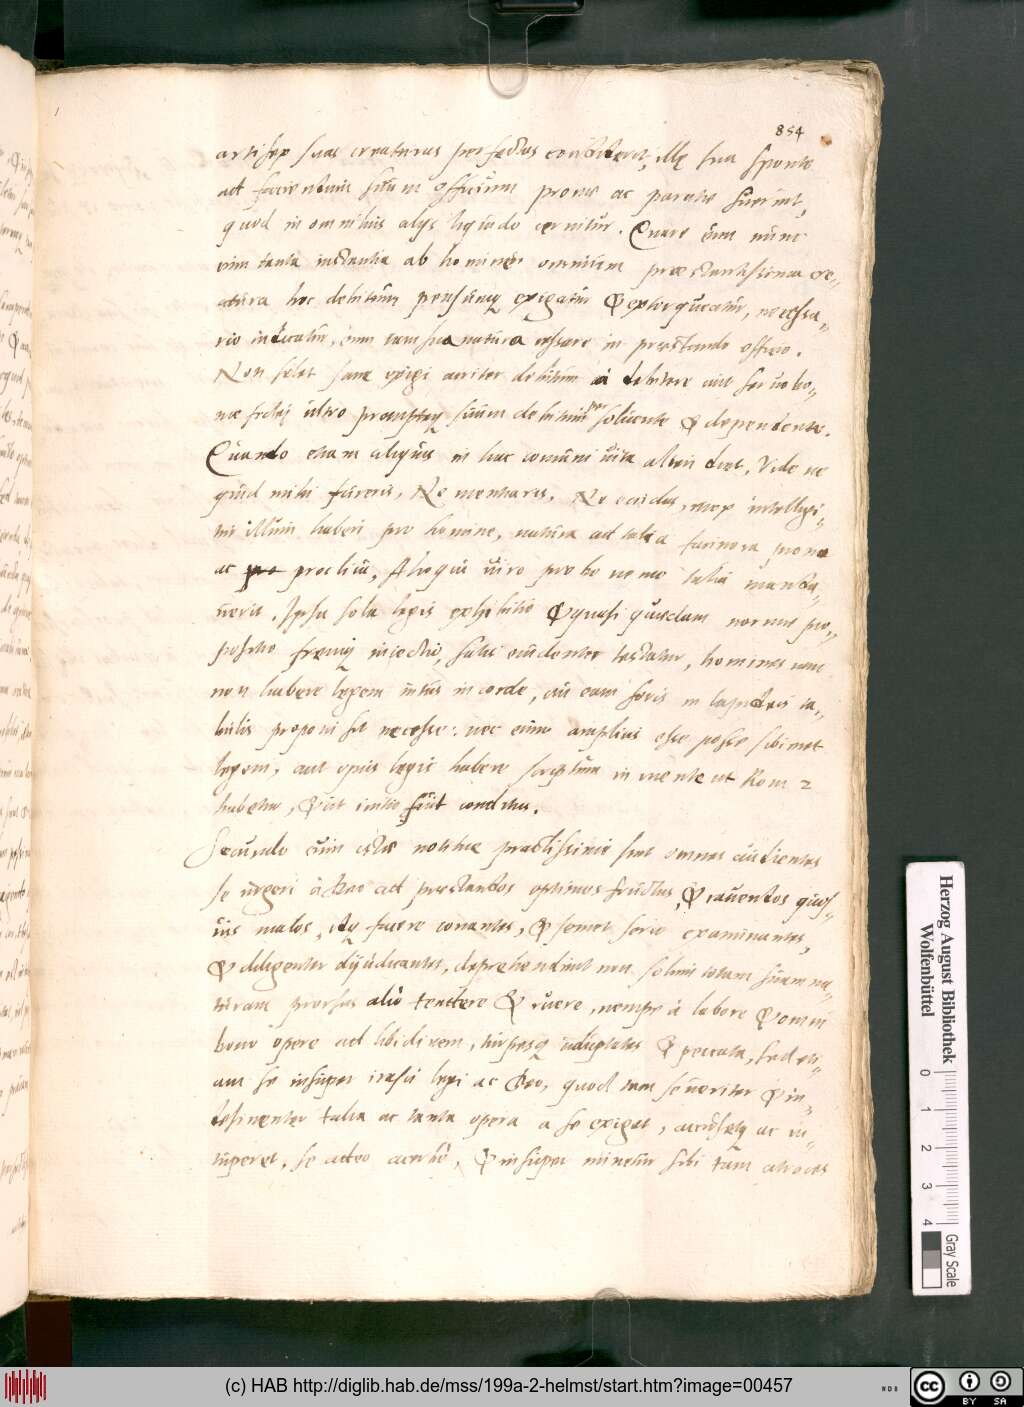 854
artifex suas creaturas perfectas condiderit, illę sua sponte
ad faciendum suum officium pronæ ac paratæ fuerint,
quod in omnibus alijs liquido cernitur. Quare cum nunc
cum tanta instantia ab homine omnium præstantissima cre„
atura hoc debitum pensumq exigatur & extorqueatur, necessa„
rio indicatur, eum iam sua natura cessare in præstando officio.
Non solet sane exigi acriter debitum à debitore aut servo bo„
næ fidej ultro promptęq suum debitum per solvente & dependente.
Quando etiam aliquis in hac comuni vita alteri dicet, Vide ne
quid mihi fureris, Ne mentiaris. Ne occidas, mox intelligi„
mus illum haberi pro homine, natura ad talia facinora prono
ac pro proclivi, Alioqui viro probo nemo talia manda„
verit. Ipsa sola legis exhibitio & quasi quaedam normæ pro„
positio frenijq iniectio, satis evidenter testatur, hominem iam
non habere legem intus in corde, cui eam foris in lapideis ta„
bulis proponi sit necesse: nec eum amplius esse posse sibimet
legem, aut opus legis habere scriptum in mente ut Rom 2
habetur, & ut initio fuit conditus.
Secundo cum istæ notitiæ practissimæ sint omnes audientes
se urgeri à Deo ad præstandos optimos fructus, & cavendos quos„
vis malos, itq facere conantes, & semet serio examinantes,
& diligenter dijudicantes, deprehendunt non solum totam suam na„
turam prorsus alio tendere & ruere, nempe à labore & omni
bono opere ad libidinem, turpesq voluptates & peccata, sed eti„
am se insuper irasci legi ac Deo, quod tam severiter & in„
desinenter talia ac tanta opera a se exigat, accusetq ac vi„
tuperet, se adeo acerbe, & insuper minetur sibi tam atroces
Herzog August Bibliothek
Wolfenbüttel
0 1 2 3 4
Gray Scale
(c) HAB http://diglib.hab.de/mss/199a-2-helmst/start.htm?image=00457
cc BY SA